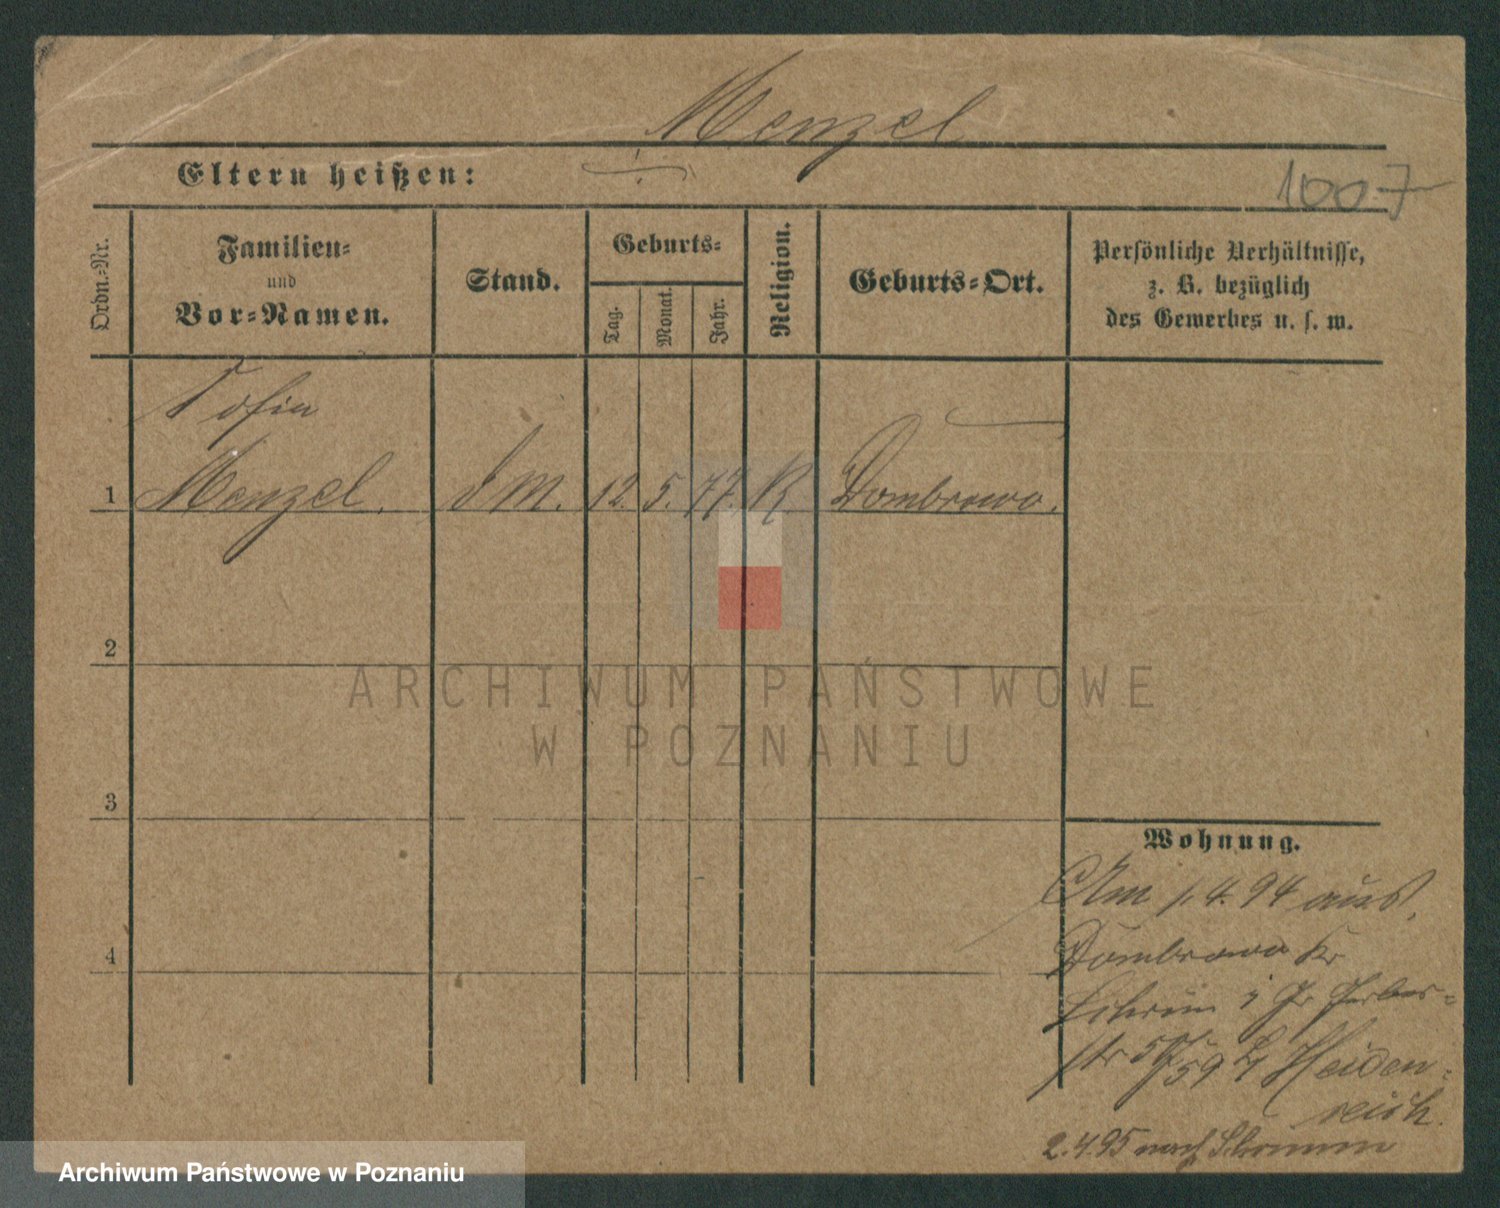 Menzel
Eltern heißen: ÷
1007
Ordn.=Nr.
Familien=
und
Vor=Namen.
Stand.
Geburts=
Tag.
Monat.
Jahr.
Religion.
Geburts=Ort.
Persönliche Verhältnisse,
z. B. bezüglich
des Gewerbes u. s. w.
Sofia
1 Menzel. d M. 12. 5. 77. K. Dombrowo.
2
3
4
ARCHIWUM PAŃSTWOWE
W POZNANIU
Wohnung.
Am 1.4.94 aus
Dombrowo Kr
Schrim i Gr Gerber=
str 58/59 b/ Heiden=
reich.
2.4.95 nach Schrimm
Archiwum Państwowe w Poznaniu